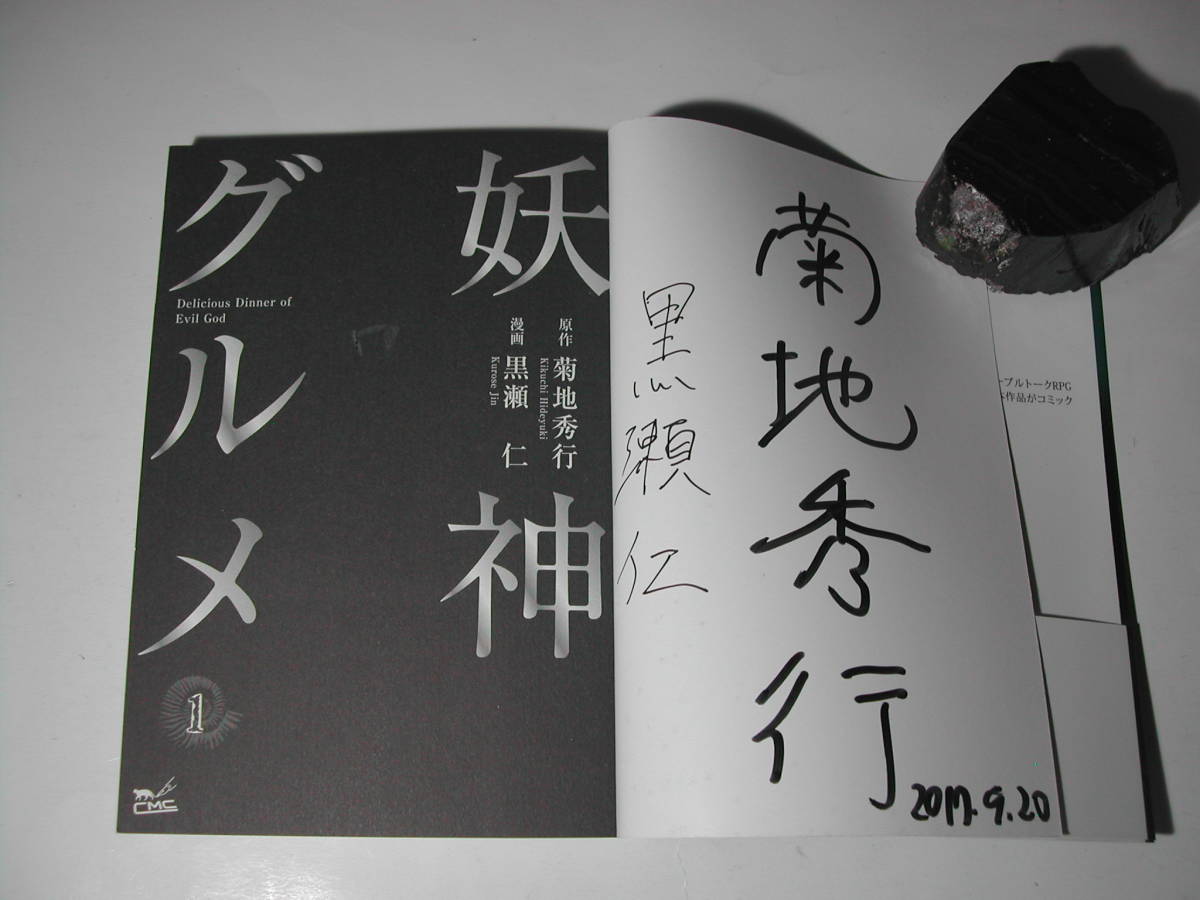 妖神
グルメ
Delicious Dinner of
Evil God
原作 菊地秀行
Kikuchi Hideyuki
漫画 黒瀬 仁
Kurose Jin
1
CMC
菊地秀行
黒瀬仁
2017.9.20
ーブルトークRPG
作品がコミック